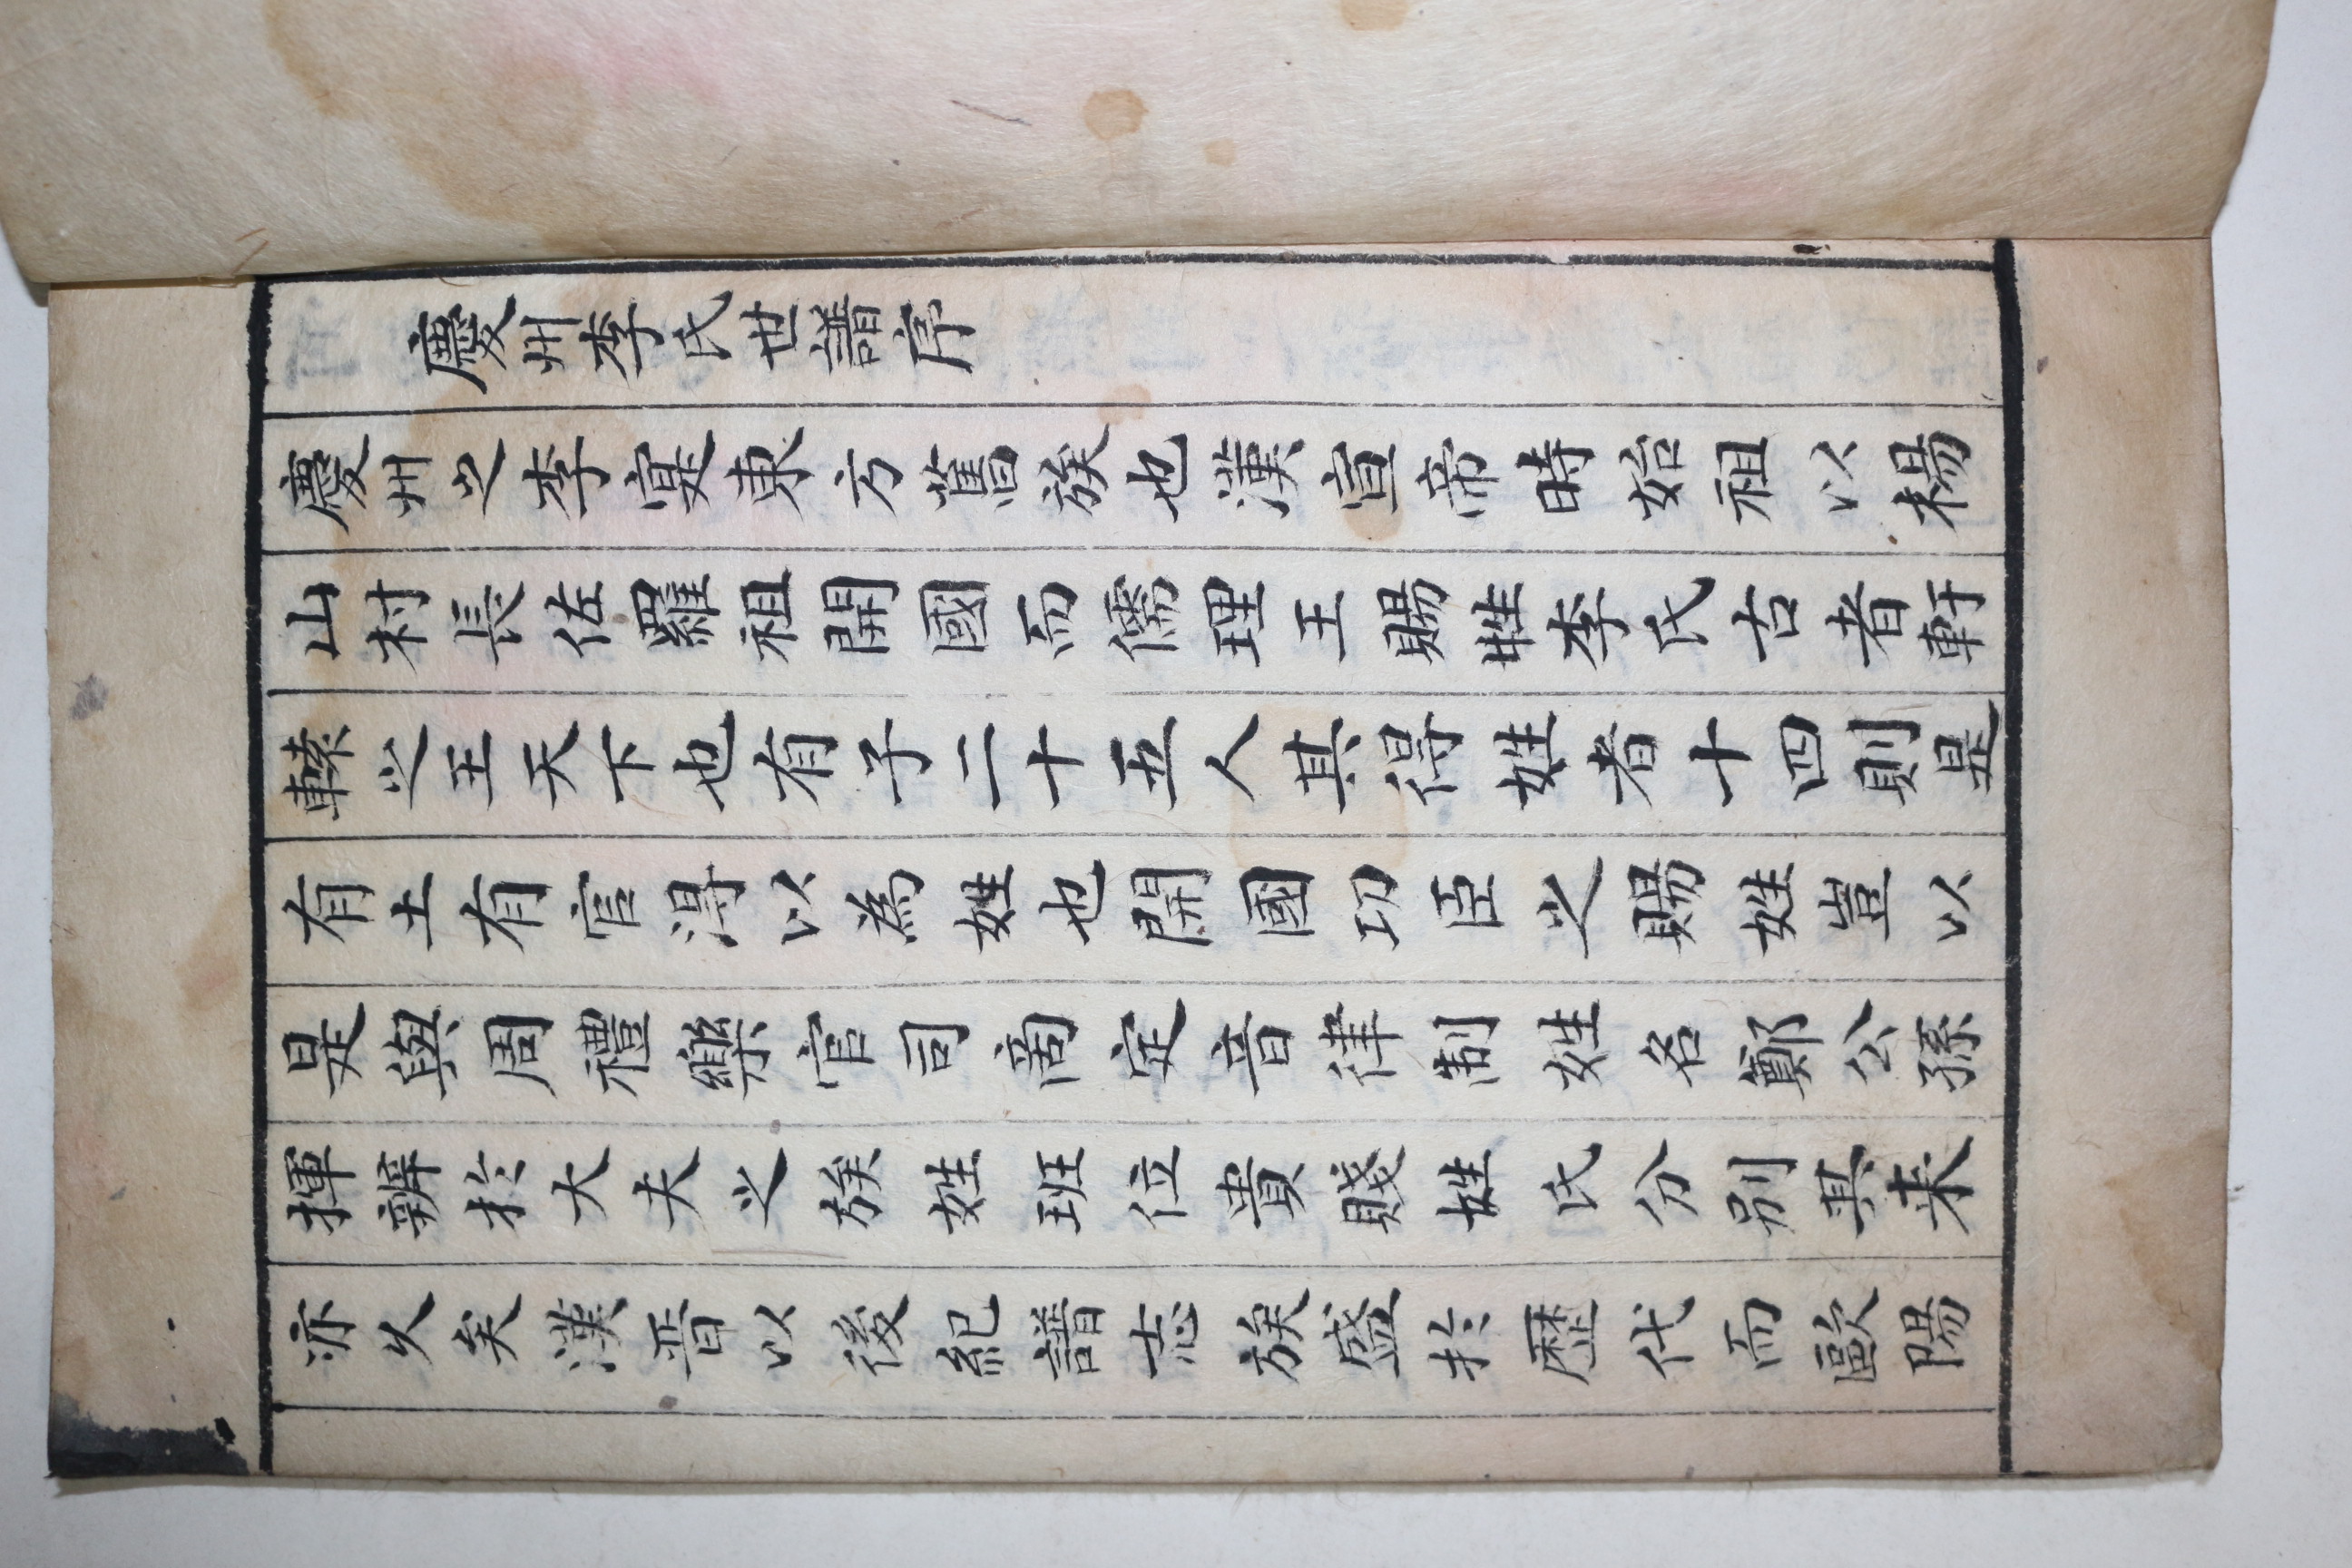 慶州李氏世譜序
慶州之李寔東方舊族也漢宣帝時始祖以楊
山村長佐羅祖開國而儒理王賜姓李氏古者軒
轅之王天下也有子二十五人其得姓者十四則是
有土有官淂以為姓也開國功臣之賜姓豈以
是與周禮樂官司啇定音律制姓名鄭公孫
揮辨於大夫之族姓班位貴賤姓氏分別其来
亦久矣漢晋以後紀譜志族盛於歷代而歐陽